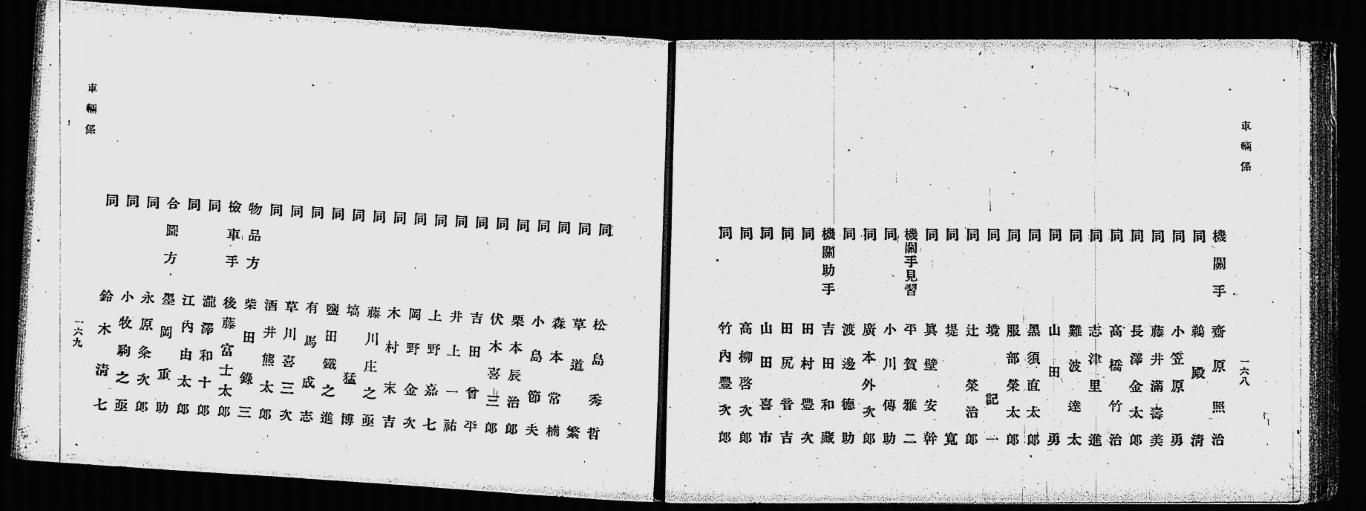 車輛係
一六八
機關手 齋原照治
同 鵜殿清
同 小笠原勇
同 藤井滿壽美
同 長澤金太郎
同 高橋竹治
同 志津里進
同 難波達太
同 山田勇
同 黑須直太郎
同 服部榮太郎
同 境記一
同 辻榮治郎
同 堤寬
同 眞壁安幹
機關手見習 平賀雅二
同 小川傳助
同 廣本外次郎
同 渡邊德助
機關助手 吉田和藏
同 田村豐次
同 田尻晉吉
同 山田喜市
同 高柳啓次郎
同 竹內豐次郎
同 松島秀哲
同 草道繁
同 森本常楠
同 小島節夫
同 栗本辰治郎
同 伏木喜三郎
同 吉田曾平
同 井上一祐
同 上野嘉七
同 岡野金次
同 木村末吉
同 藤川庄之亟
同 塙猛博
同 鹽田鐵之進
同 有馬成志
同 草川喜三次
同 酒井熊太郎
物品方 柴田錄三
檢車手 後藤富士太郎
同 瀧澤和十郎
同 江內由太郎
合圖方 墨岡重助
同 永原粂次郎
同 小牧駒之亟
同 鈴木清七
車輛係
一六九